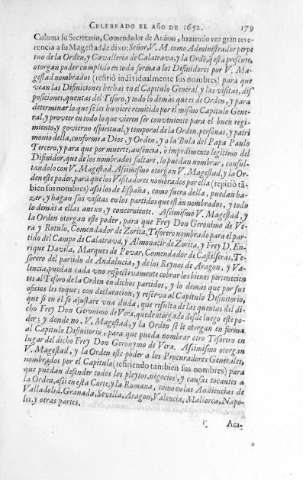 CELEBRADO EL AÑO DE 1652. 179
Coloma su Secretario, Comendador de Auñon, haziendo vna gran reue-
rencia a su Magestad, dixo: Señor, V. M. como Administrador perpe-
tuo de la Orden, y Cavalleria de Calatrava, y la Ordẽ, q̃ esta presente,
otorgan poder cumplido en toda forma a los Difinidores por V. Ma-
gestad nombrados (refirió individualmente sus nombres) para que
vean las Difiniciones hechas en el Capitulo General, y las visitas, dis-
posiciones, quentas del Tesoro, y todo lo demas q̃ antes de Orden, y para
determinar lo que se ha
por el mismo Capitulo Gene-
ral, y proveer en todo lo que vieren ser conveniente para el buen regi-
miento, y govierno espiritual, y temporal de la Orden, personas, y patri-
monio della, conforme a Dios, y Orden, y a la Bula del Papa Paulo
Tercero, y para que por muerte, ausencia, ò impedimento legitimo del
Difinidor, que de los nombrados faltare, lo puedan nombrar, consul-
tandolo con V. Magestad. Assimismo otorgan V. Magestad, y la Or-
den este poder, para que los Visitadores nombrados por ella (repitiò tã-
bien sus nombres) assi los de España, como fuera della, puedan ha-
zer, y hagan sus visitas en los partidos que estàn nombrados, y todo
lo demàs a ellas anexo, y concerniente. Assimismo V. Magestad, y
la Orden otorgan este poder, para que Frey Don Geronimo de Ve-
ra y Rotulo, Comendador de Zorita, Tesorero nombrado para el par-
tido del Campo de Calatrava, y Almonacir de Zorita, y Frey D. En-
rique Davila, Marques de Povar, Comendador de Castilseràs, Te-
sorero del partido de Andaluzia, y de los Reynos de Aragon, y Va-
lencia, puedan cada vno respectivamente cobrar los bienes pertenecien-
tes al Tesoro de la Orden en dichos partidos, y lo demas que por sus
oficios les toque: con declaracion, y reserva al Capitulo Difinitorio,
que si en èl se ajustare vna duda, que resulta de las quentas del di-
cho Frey Don Geronimo de Vera, quede otorgado desde luego este po-
der, y donde no, V. Magestad, y la Orden se le otorgan en forma
al Capitulo Difinitorio, para que pueda nombrar otro Tesorero en
lugar del dicho Frey Don Geronimo de Vera. Assimismo otorgan
V. Magestad, y la Orden este poder a los Procuradores Generales,
nombrados por el Capitulo (refiriendo tambien sus nombres) para
que puedan defender todos los pleytos, negocios, y causas tocantes a
la Orden, assi en esta Corte, y la Romana, como en las Audiencias de
Valladolid, Granada, Sevilla, Aragon, Valencia, Mallorca, Napo-
les, y otras partes.
Aca-